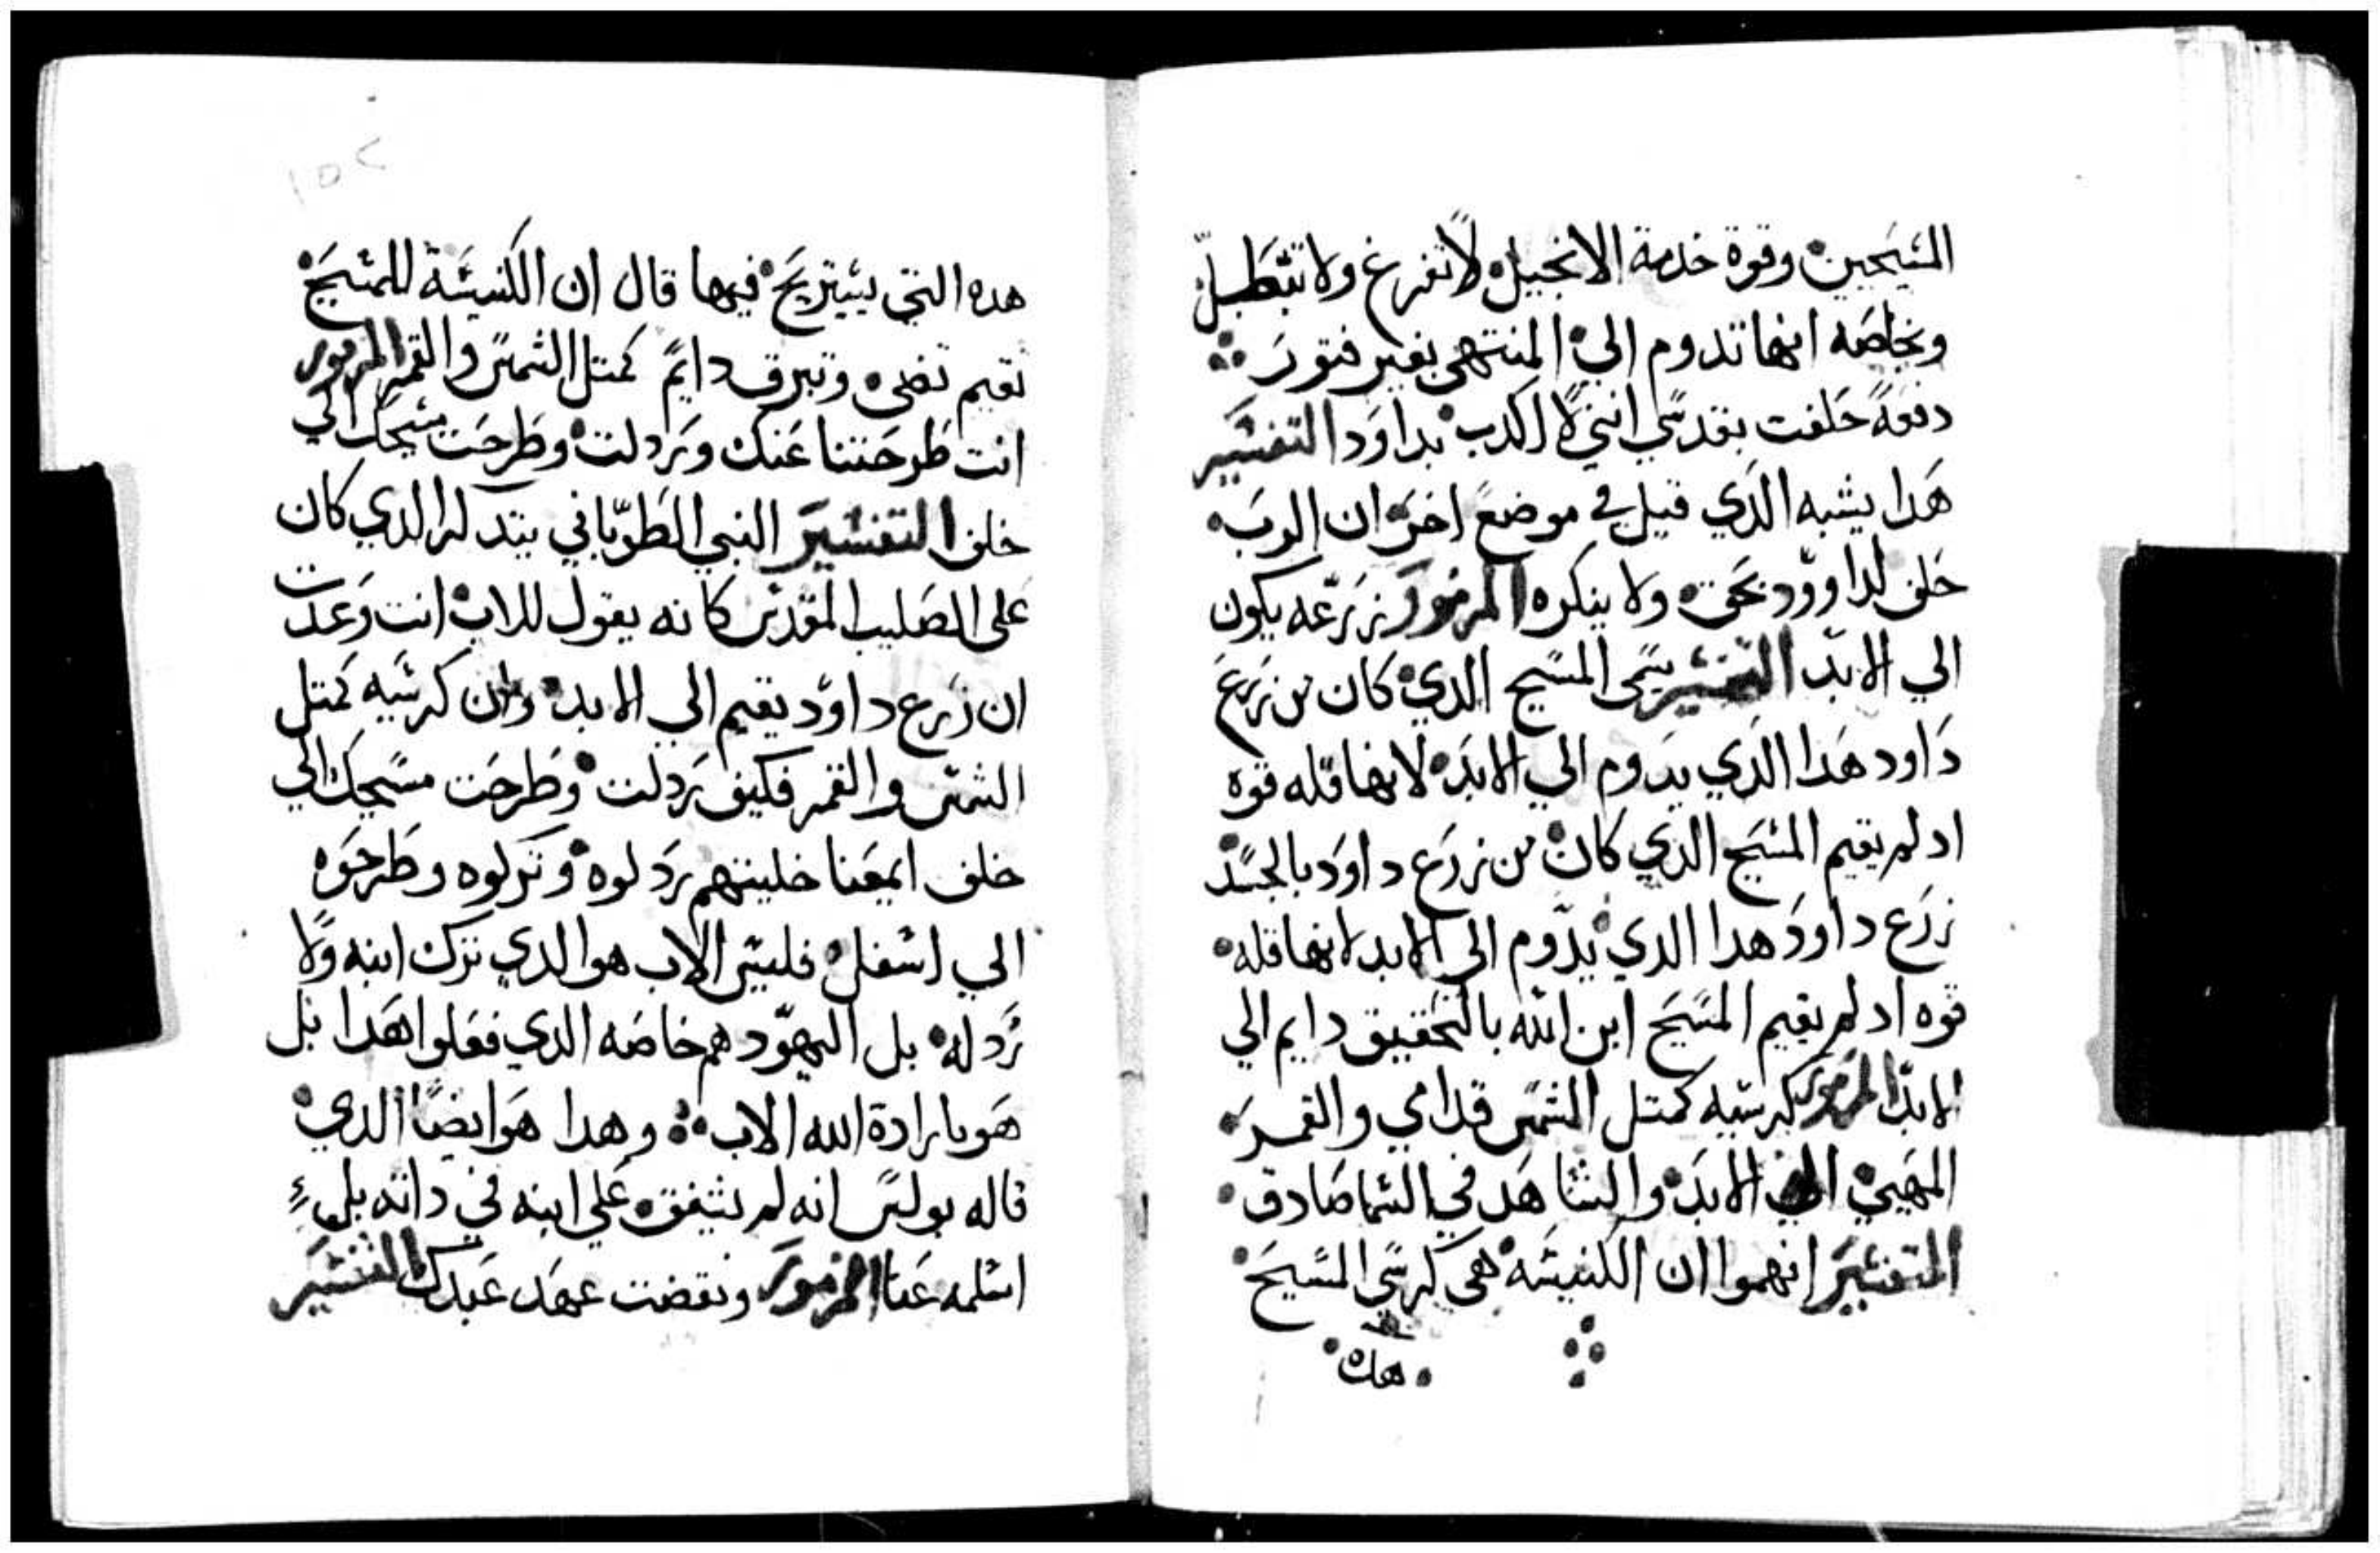 المسيحيين وقوة خدمة الانجيل لا تفرغ ولا تتبطل
وبخاصه انها تدوم الي المنتهي بغير فتور
دفعة حلفت بقدسي انني لا اكدب بداود التفسير
هدا يشبه الدي قيل في موضع اخر ان الرب
حلف لداوود بحق ولا ينكره المزمور زرعه يكون
الي الابد التفسير يسمي المسيح الدي كان من زرع
داود هدا الدي يدوم الي الابد لانها قله قوه
اد لم يقيم المسيح الدي كان من زرع داود بالجسد
زرع داود هدا الدي يدوم الي الابد لانها قله
قوه اد لم يقيم المسيح ابن الله بالتحقيق دايم الي
الابد المزمور كرسيه كمتل الشمس قدامي والقمر
المهيي الي الابد والشاهد في السما صادق
التفسير افهموا ان الكنيسه هي كرسي المسيح
هده
١٥٢
هده التي يستريح فيها قال ان الكنيسة للمسيح
تقيم تضي وتبرق دايم كمتل الشمس والقمر المزمور
انت طرحتنا عنك وردلت وطرحت مسيحك الي
خلف التفسير النبي الطوباني يتدكر الدي كان
علي الصليب المقدس كانه يقول للاب انت وعدت
ان زرع داود يقيم الي الابد وان كرسيه كمتل
الشمس والقمر فكيف ردلت وطرحت مسيحك الي
خلف ايمعنا خليتهم ردلوه وتركوه وطرحوه
الي اسفل فليس الاب هو الدي ترك ابنه ولا
ردله بل اليهود هم خاصه الدي فعلوا هدا بل
هو بارادة الله الاب وهدا هو ايضا الدي
قاله بولس انه لم يشفق علي ابنه في داته بل
اسلمه عنا المزمور ونقضت عهد عبدك التفسير